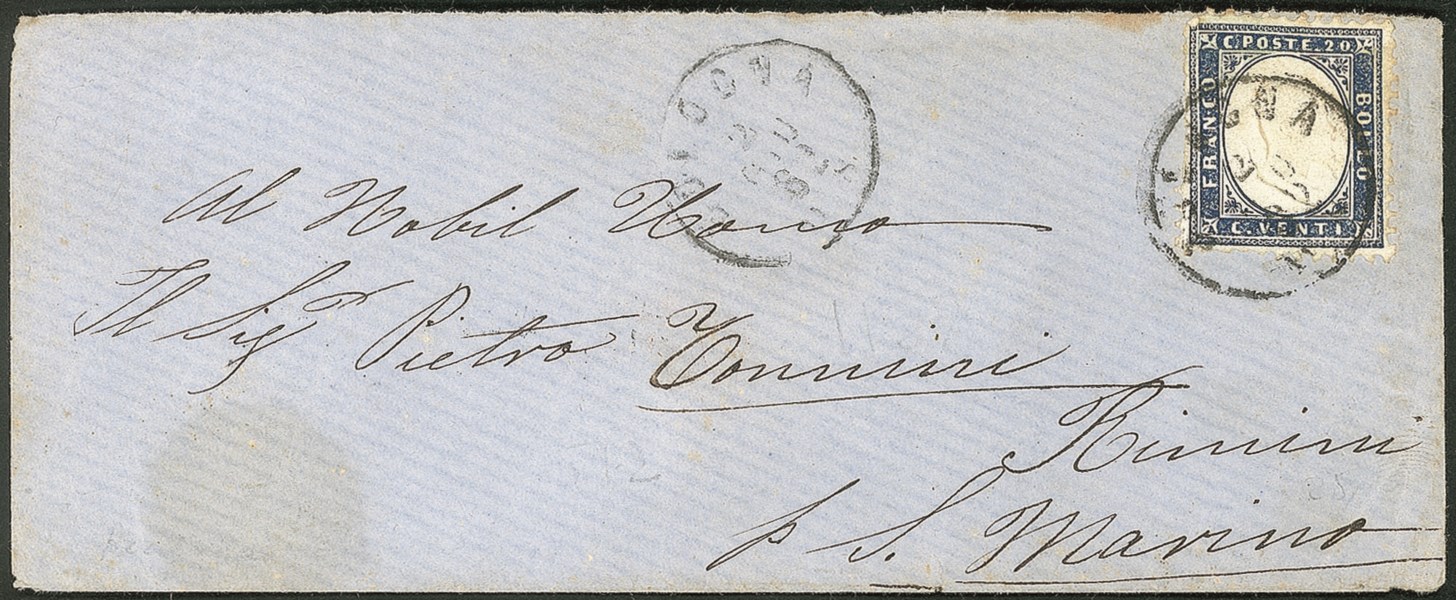 C. POSTE 20
FRANCO
BOLLO
C. VENTI
Al Nobil Uomo
Il Sigr Pietro Tonnini
Rimini
p S. Marino